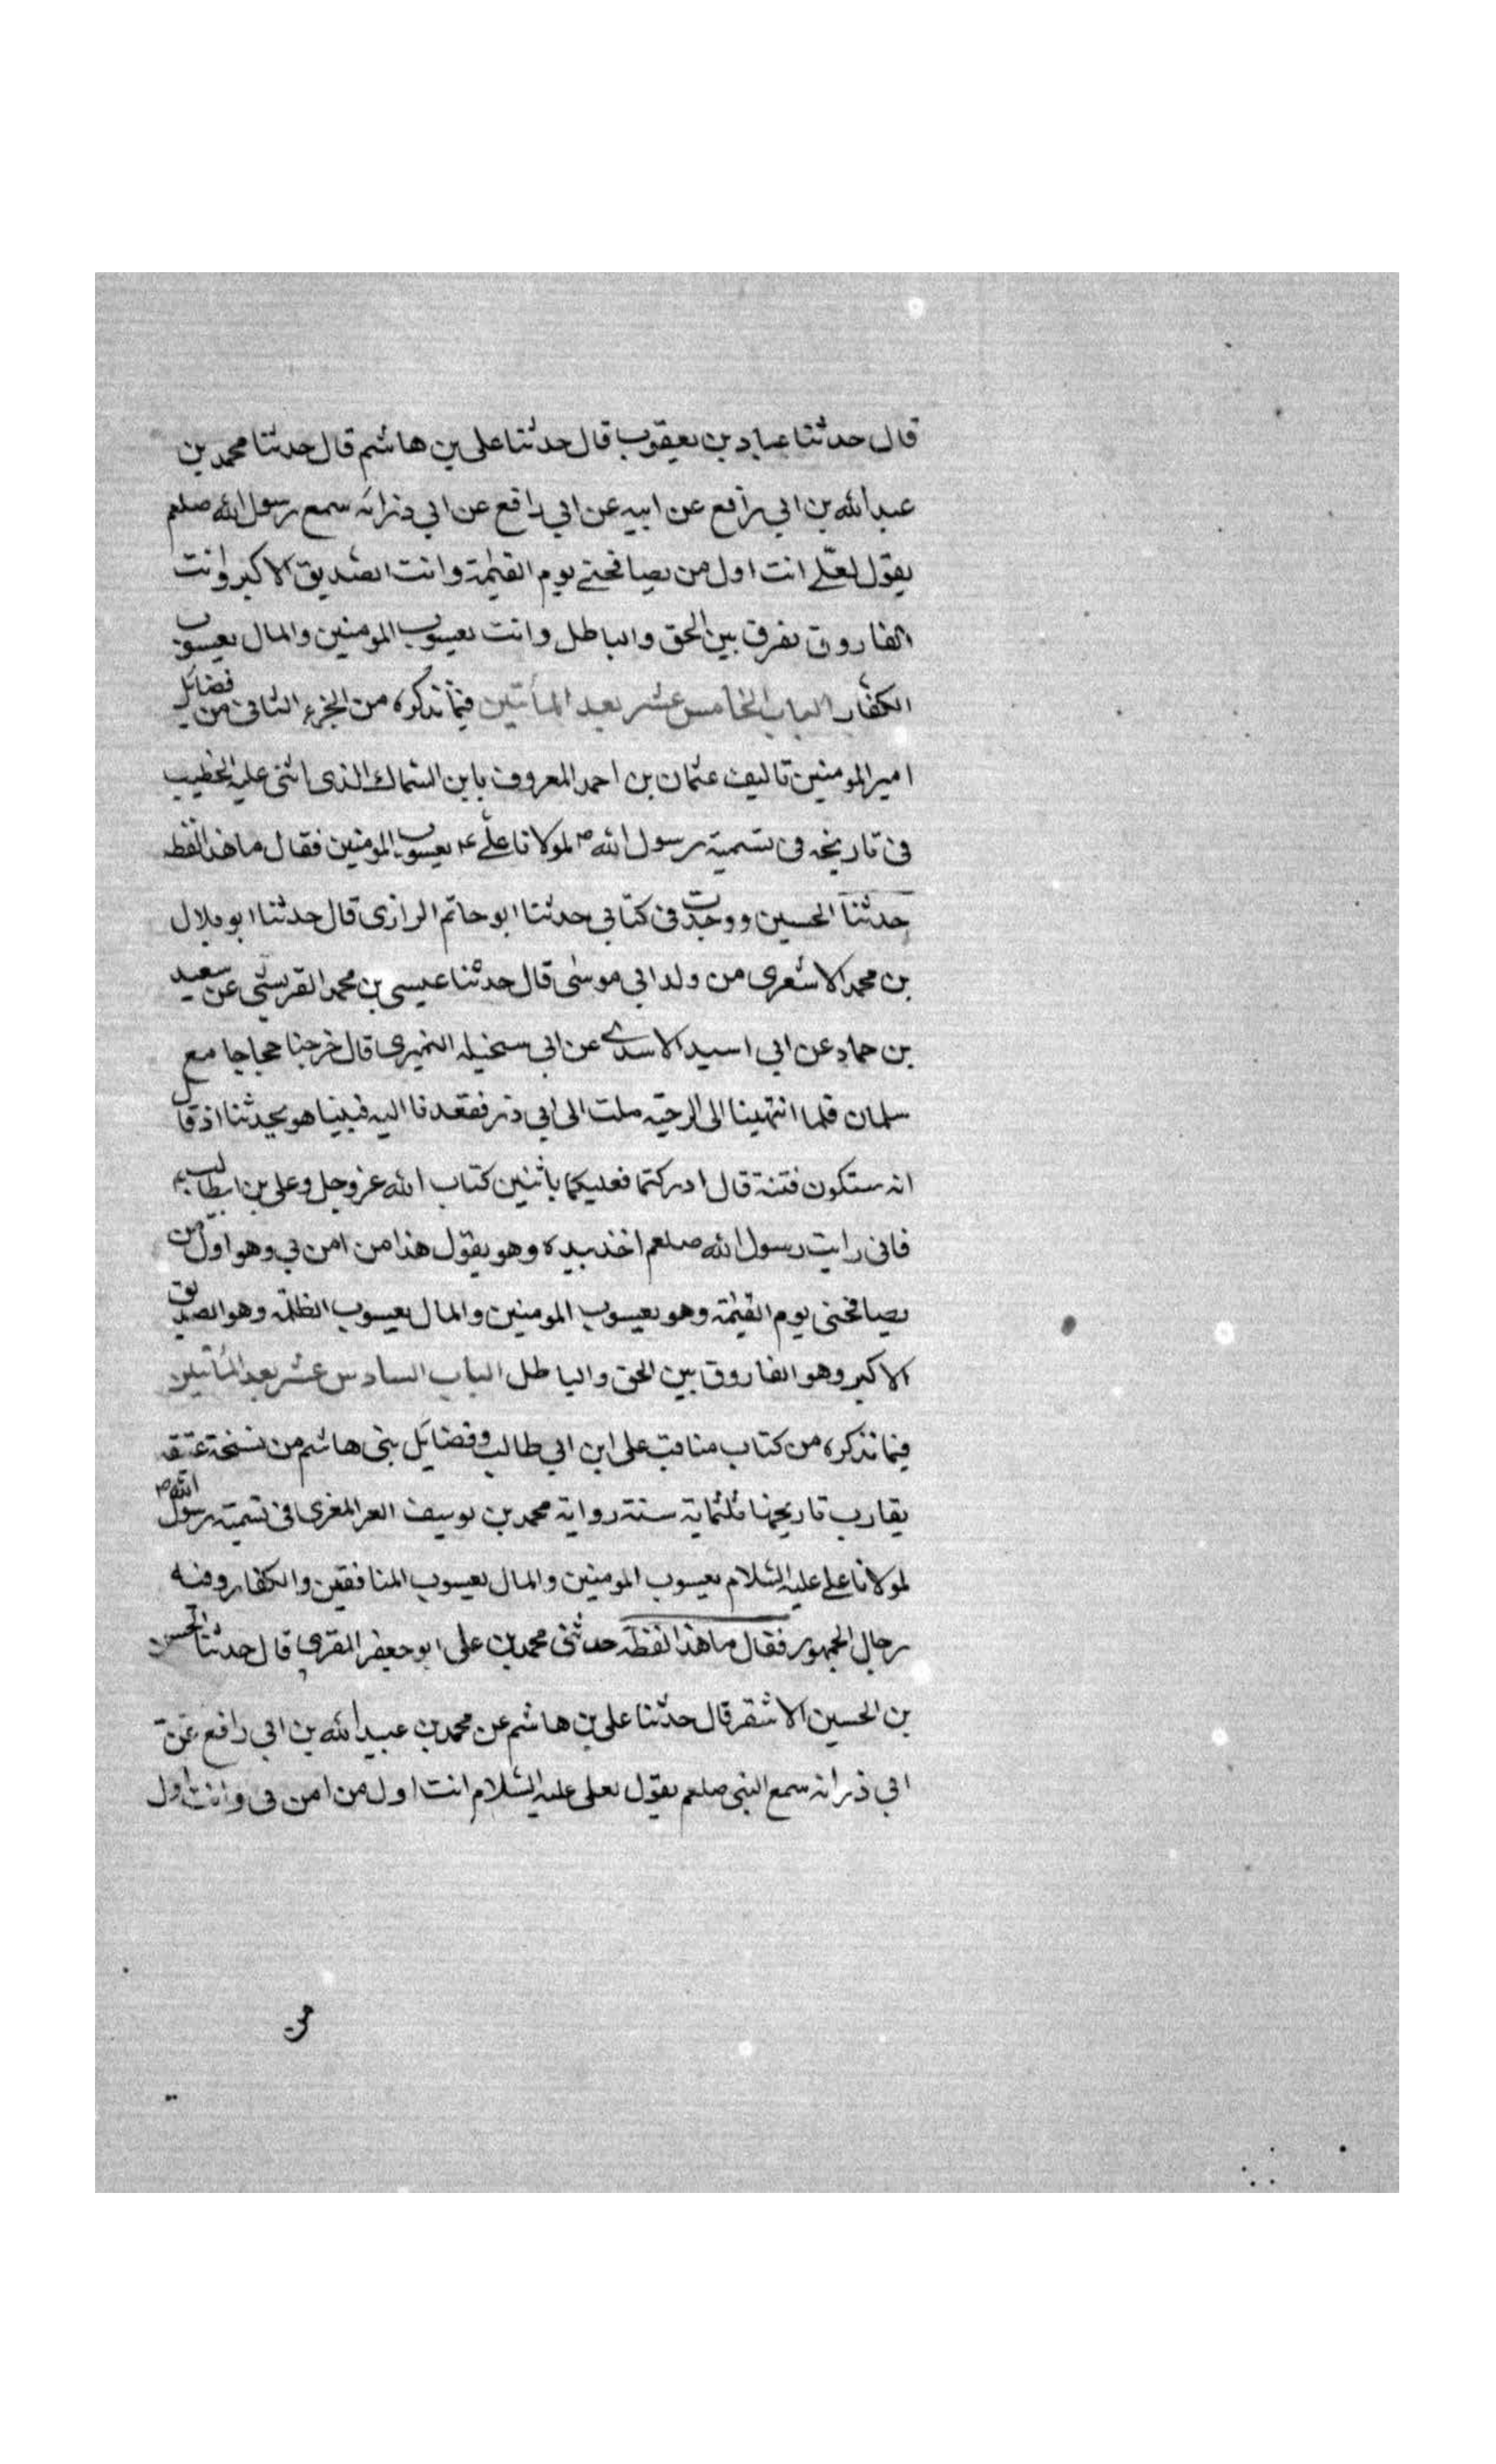 قال حدثنا عباد بن يعقوب قال حدثنا على بن هاشم قال حدثنا محمد بن
عبد الله بن ابي رافع عن ابيه عن ابي رافع عن ابي ذر انه سمع رسول الله صلعم
يقول لعلي انت اول من يصافحني يوم القيمة وانت الصديق الاكبر وانت
الفاروق تفرق بين الحق والباطل وانت يعسوب المومنين والمال يعسوب
الكفار الباب الخامس عشر بعد المأتين فيما نذكره من الجزء الثانى من فضائل
امير المومنين تاليف عثمان بن احمد المعروف بابن السماك الذى اثنى عليه الخطيب
فى تاريخه فى تسمية رسول الله ص لمولانا علي ع يعسوب المومنين فقال ما هذا لفظه
حدثنا الحسين ووجدت فى كتابي حدثنا ابو حاتم الرازى قال حدثنا ابو بلال
بن محمد الاشعرى من ولد ابي موسى قال حدثنا عيسى بن محمد القرشي عن سعيد
بن حماد عن ابي اسيد الاسدي عن ابي سخيله النميرى قال خرجنا حجاجا مع
سلمان فلما انتهينا الى الرحبه ملت الى ابي ذر فقعدنا اليه فبينا هو يحدثنا اذ قال
انه ستكون فتنة قال ادركتما فعليكما باثنين كتاب الله عز وجل وعلى بن ابيطالب ع
فانى رايت رسول الله صلعم اخذ بيده وهو يقول هذا من امن بي وهو اول من
يصافحنى يوم القيمة وهو يعسوب المومنين والمال يعسوب الظلمه وهو الصديق
الاكبر وهو الفاروق بين الحق والباطل الباب السادس عشر بعد المأتين
فيما نذكره من كتاب مناقب على ابن ابي طالب وفضايل بنى هاشم من نسخة عتيقة
يقارب تاريخها ثلثماية سنة رواية محمد بن يوسف المغرى فى تسمية رسول الله ص
لمولانا على عليه السلام يعسوب المومنين والمال يعسوب المنافقين والكفار وفيه
رجال الجمهور فقال ما هذا لفظه حدثنى محمد بن على ابو جعفر المقرى قال حدثنا الحسن
بن الحسين الاشقر قال حدثنا على بن هاشم عن محمد بن عبيد الله بن ابي رافع عن
ابي ذر انه سمع النبي صلعم يقول لعلى عليه السلام انت اول من امن بى وانت اول